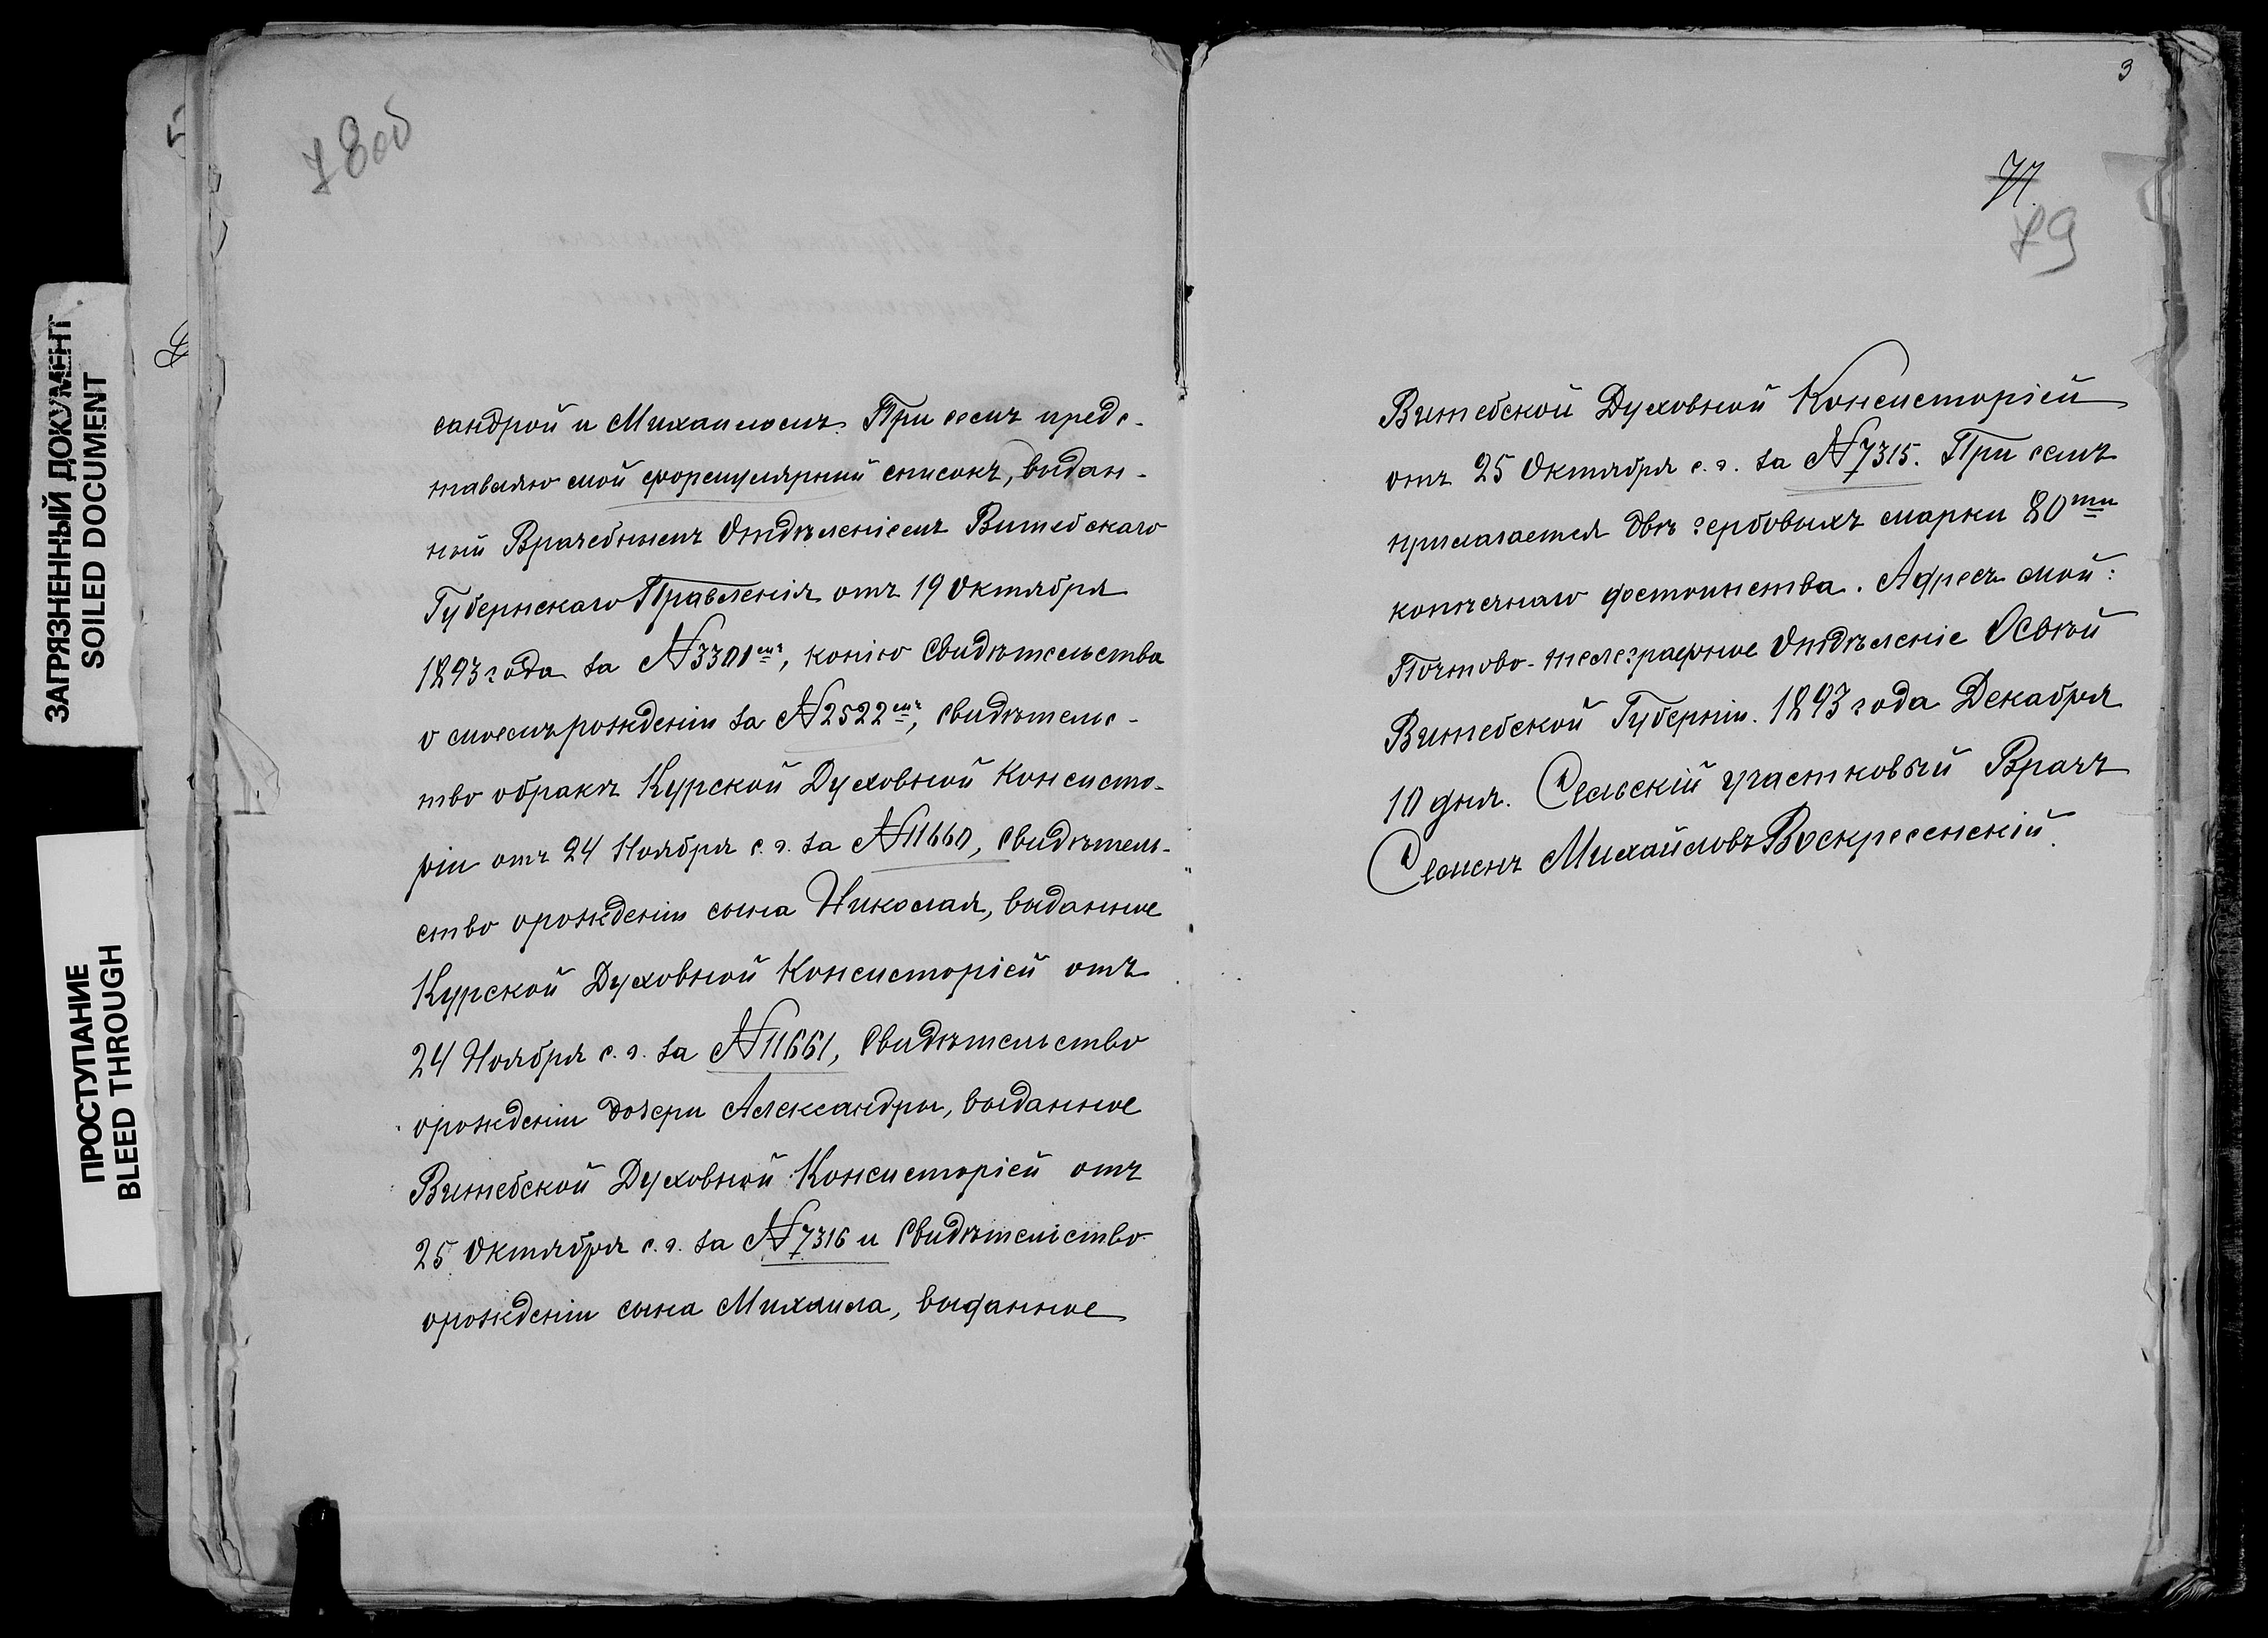 ЗАГРЯЗНЕННЫЙ ДОКУМЕНТ
SOILED DOCUMENT
ПРОСТУПАНИЕ
BLEED THROUGH
78об
сандрой и Михаиломъ. При семъ предс-
тавляю мой формулярный списокъ, выдан-
ный Врачебнымъ Отдѣленіемъ Витебскаго
Губернскаго Правленія отъ 19 Октября
1893 года за № 3301емъ, копію свидѣтельства
о моемъ рожденіи за № 2522емъ, свидѣтельс-
тво о бракѣ Курской Духовной Консисто-
ріи отъ 24 Ноября с. г. за № 11660, свидѣтель-
ство о рожденіи сына Николая, выданное
Курской Духовной Консисторіей отъ
24 Ноября с. г. за № 11661, свидѣтельство
о рожденіи дочери Александры, выданное
Витебской Духовной Консисторіей отъ
25 Октября с. г. за № 7316 и свидѣтельство
о рожденіи сына Михаила, выданное
3
77
79
Витебской Духовной Консисторіей
отъ 25 Октября с. г. за № 7315. При семъ
прилагается двѣ гербовыхъ марки 80ти
копѣечнаго достоинства. Адресъ мой:
Почтово-телеграфное Отдѣленіе Освѣй
Витебской Губерніи. 1893 года Декабря
10 дня. Сельскій участковый Врачъ
Семенъ Михайловъ Воскресенскій.